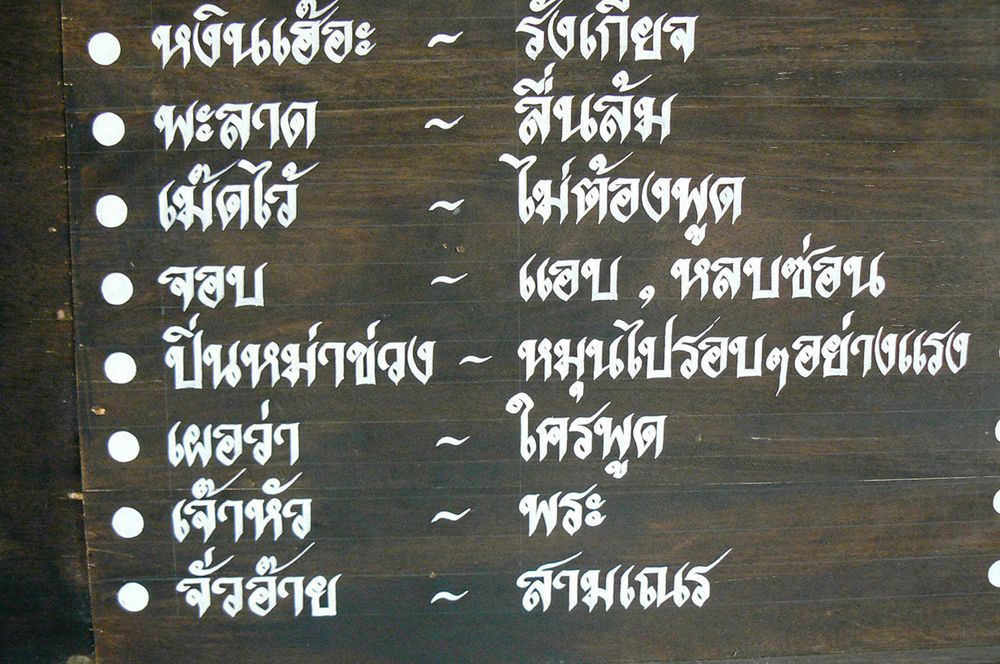 • หงินแฮ๊อะ ~ รังเกียจ
• พะลาด ~ ลื่นล้ม
• เม๊ดไว้ ~ ไม่ต้องพูด
• จอบ ~ แอบ , หลบซ่อน
• ปิ่นหม่าช่วง ~ หมุนไปรอบๆอย่างแรง
• เผอว่า ~ ใครพูด
• เจ๊าหัว ~ พระ
• จั่วอ๊าย ~ สามเณร